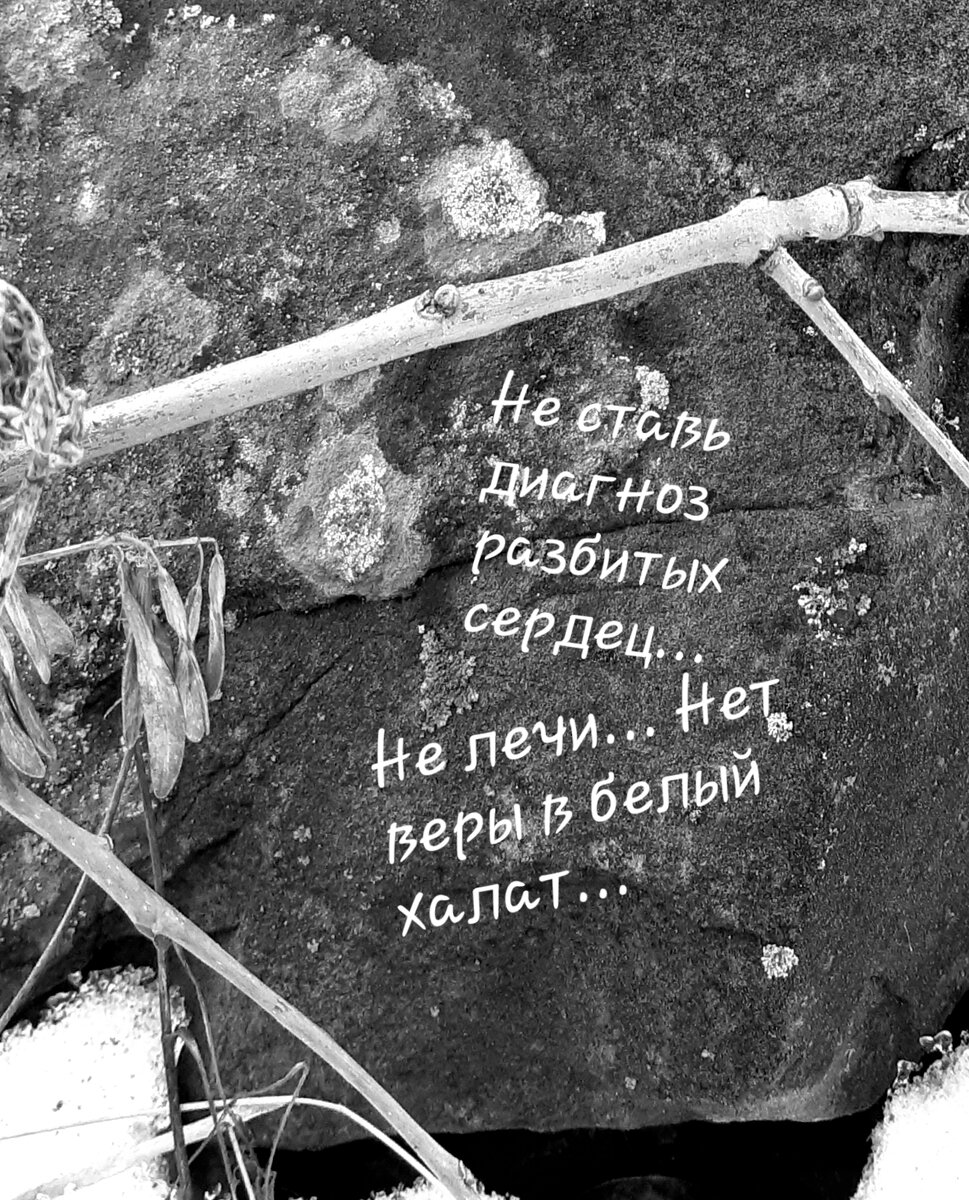 Не ставь
диагноз
разбитых
сердец...
Не лечи... Нет
веры в белый
халат...